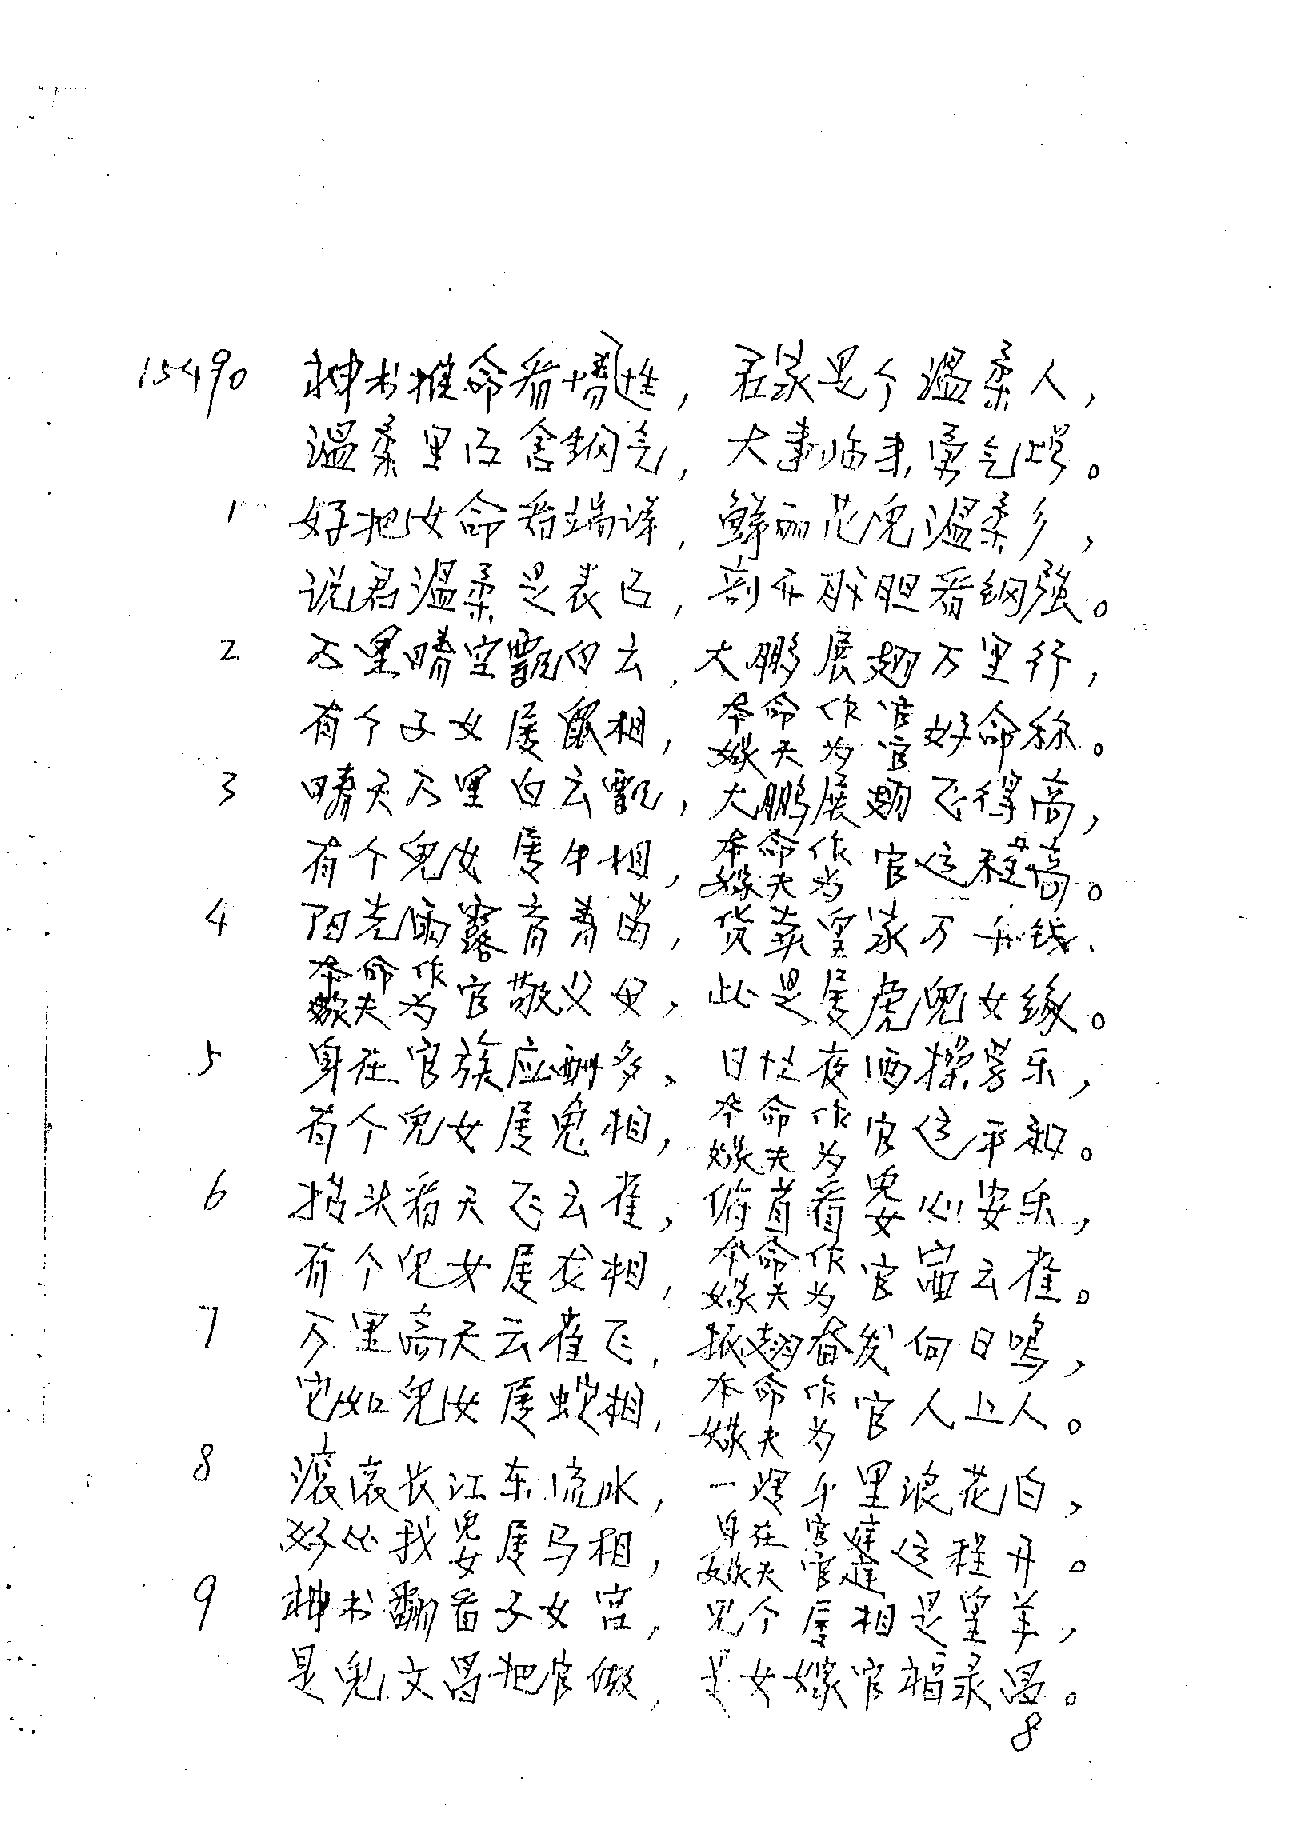 15490 神书推命看情性，君家是个温柔人，
温柔里面含钢气，大事临来勇气增。
1 好把女命看端详，鲜丽花儿温柔乡，
说君温柔是表面，剖开肝胆看钢强。
2 万里晴空飘白云，大鹏展翅万里行，
有个子女属鼠相，本命作官嫁夫为官好命称。
3 晴天万里白云飘，大鹏展翅飞得高，
有个儿女属牛相，本命作嫁夫为官运程高。
4 阳光雨露育青苗，货卖皇家万千钱，
本命作嫁夫为官敬父母，此是属虎儿女缘。
5 身在官族应酬多，日忙夜西操劳乐，
有个儿女属兔相，本命作嫁夫为官运平和。
6 抬头看天飞云雀，俯首看儿女心安乐，
有个儿女属龙相，本命作嫁夫为官云雀。
7 万里高天云雀飞，振翅奋发向日鸣，
它如儿女属蛇相，本命作嫁夫为官人上人。
8 滚滚长江东流水，一泻千里浪花白，
好比我儿女属马相，身在官嫁夫官运程开。
9 神书翻看子女宫，儿个属相是望羊，
是儿文昌把官做，是女嫁官福录昌。
8